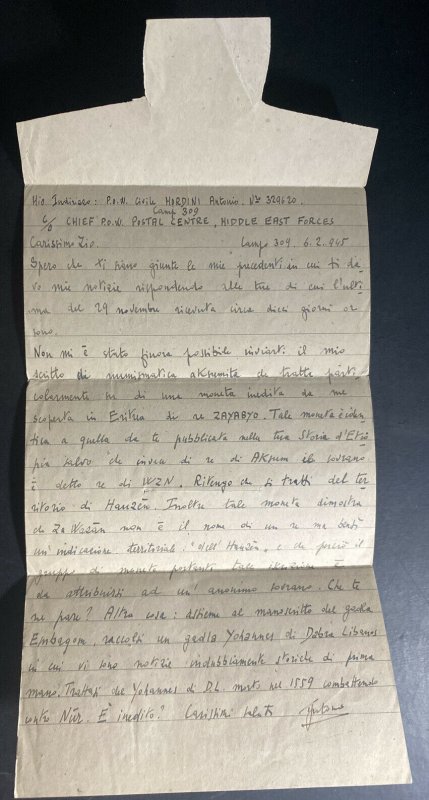 Mio Indirizzo: P.O.W. Civile MORDINI Antonio. N° 329620.
Camp 309
c/o CHIEF P.O.W. POSTAL CENTRE, MIDDLE EAST FORCES
Carissimo Zio. Camp 309, 6.2.945
Spero che ti siano giunte le mie precedenti in cui ti da
vo mie notizie rispondendo alle tue di cui l'ulti
ma del 29 novembre ricevuta circa dieci giorni or
sono.
Non mi è stato finora possibile inviarti il mio
scritto di numismatica aksumita che tratta parti
colarmente di una moneta inedita da me
scoperta in Eritrea di re ZAYABYO. Tale moneta è iden
tica a quella da te pubblicata nella tua Storia d'Etio
pia salvo che invece di re di AKsum il sovrano
è detto re di WZN. Ritengo che si tratti del ter
ritorio di Hauzén. Inoltre tale moneta dimostra
che Za Wazān non è il nome di un re ma bensì
un'indicazione territoriale: "dell'Hauzén", e che perciò il
gruppo di monete portanti tale iscrizione è
da attribuirsi ad un anonimo sovrano. Che te
ne pare? Altra cosa: assieme al manoscritto del gadla
Embagom, raccolsi un gadla Yohannes di Dabra Libanos
in cui vi sono notizie indubbiamente storiche di prima
mano. Trattasi del Yohannes di D.L. morto nel 1559 combattendo
contro Nūr. È inedito? Carissimi saluti Antonio